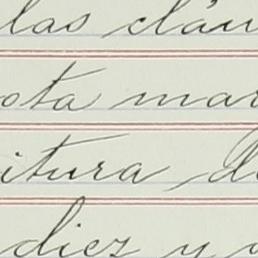 las cláu
ota mar
itura de
diez y